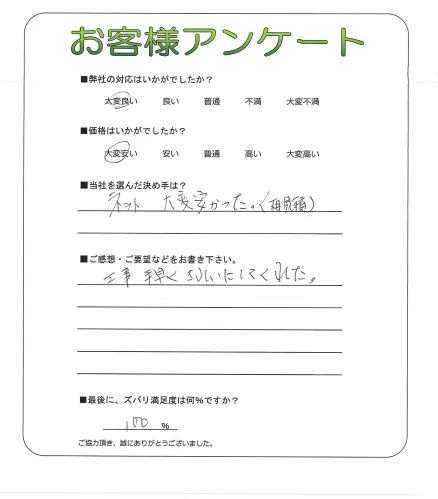 お客様アンケート
■弊社の対応はいかがでしたか？
大変良い 良い 普通 不満 大変不満
■価格はいかがでしたか？
大変安い 安い 普通 高い 大変高い
■当社を選んだ決め手は？
ネット 大変安かった。（再見積）
■ご感想・ご要望などをお書き下さい。
工事 手早く きれいにしてくれた。
■最後に、ズバリ満足度は何%ですか？
100 %
ご協力頂き、誠にありがとうございました。